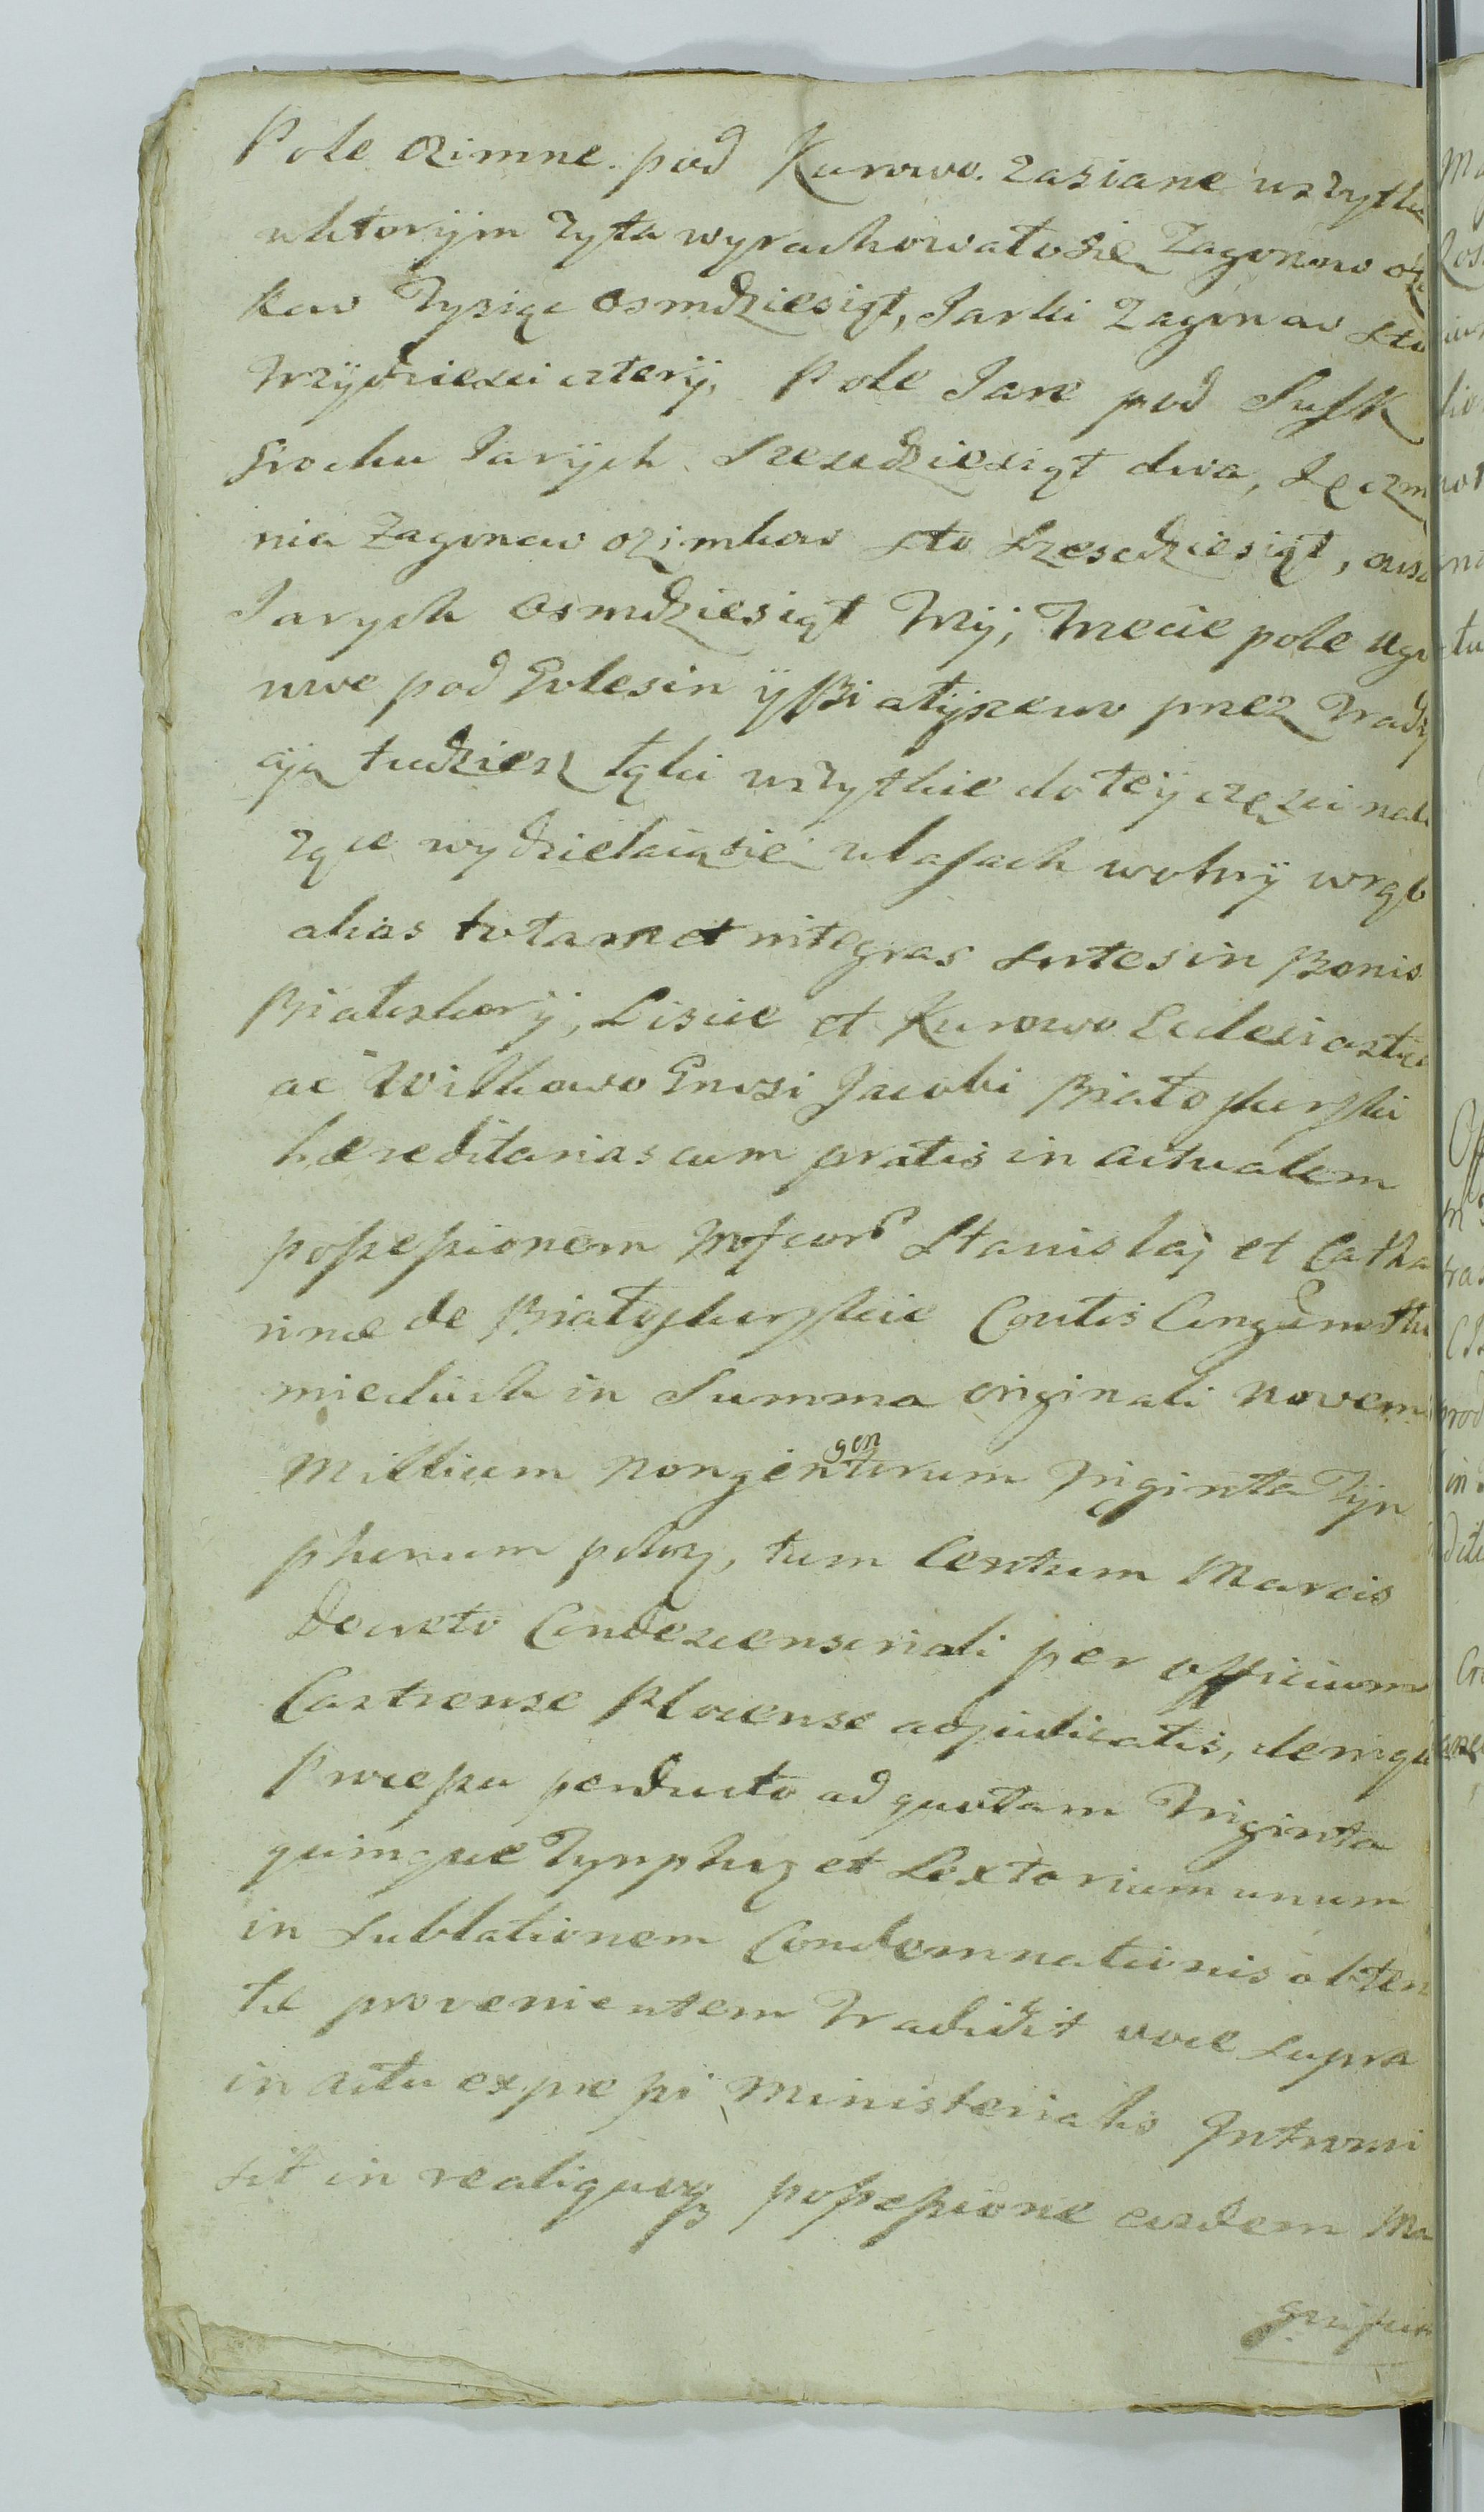 Pole ozimne pod Kurowo. zasiane wszytkie
wktorÿm żyta wyrachowało się Zagonow ozi
kow Tysiąc osmdziesiąt, Jarki Zagonow sto
trzÿdziesci czterÿ, Pole Jare pod Susk
Grochu Jarÿch szescdziesiąt dwa, Jęczm
nia Zagonow ozimkow sto szescdziesiąt, owsa
Jarych osmdziesiąt trzÿ, trzecie pole ugo
rowe pod Golesin ÿ Białÿszewo przez tradÿ
cÿą tudziesz łąki wszytkie do teÿ częsci nale
zące wydzielaią się w lasach wolnÿ wrąb
alias totam et integras sortes in Bonis
Białoskorÿ, Lisice et Kurowo Ecclesiastic
ac Wilkowo Gnosi Jacobi Białoskurski
hæreditarias cum pratis in actualem
possessionem Mfcorum Stanislaj et Catha
rinæ de Białoskurskie Contis
mieckich in Summa originali novem
Millium nongentorum gen triginta Tÿn
phorum polon, tum Centum Marcis
Decreto Condescensoriali per officium
Castrense Plocense adjudicatis, deniqu
Processu perducto ad quotam Triginta
quinque Tynphor et Sextarium unum
in sublationem Condemnationis obten
tæ provenientem tradidit voce supra
in actu expressi Ministerialis Intromi
sit in realiqueq possessione eisdem Ma